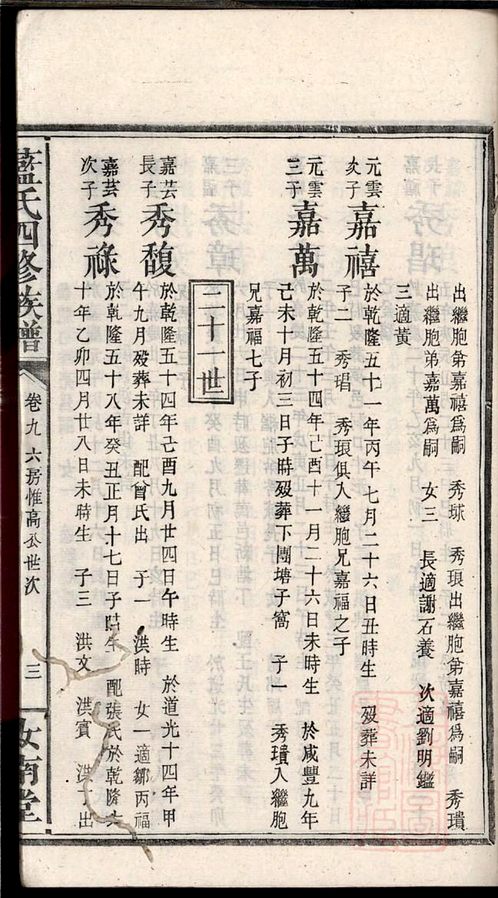 出繼胞弟嘉禧為嗣 秀球 秀琅出繼胞弟嘉禧為嗣 秀瓆
出繼胞弟嘉萬為嗣 女三 長適謝石養 次適劉明鑑
三適黃
元雲次子 嘉禧 於乾隆五十一年丙午七月二十六日丑時生 歿葬未詳
子二 秀琩 秀琅俱入繼胞兄嘉福之子
元雲三子 嘉萬 於乾隆五十四年己酉十一月二十六日未時生 於咸豐九年
己未十月初三日子時歿葬下團塘子窩 子一 秀瓆入繼胞
兄嘉福七子
二十一世
嘉芸長子 秀馥 於乾隆五十四年己酉九月廿四日午時生 於道光十四年甲
午九月歿葬未詳 配曾氏出 子一 洪時 女一適鄒丙福
嘉芸次子 秀祿 於乾隆五十八年癸丑正月十七日子時生 配張氏於乾隆六
十年乙卯四月廿八日未時生 子三 洪文 洪賓 洪 出
藍氏四修族譜
卷九 六房惟高公世次
三
汝南堂